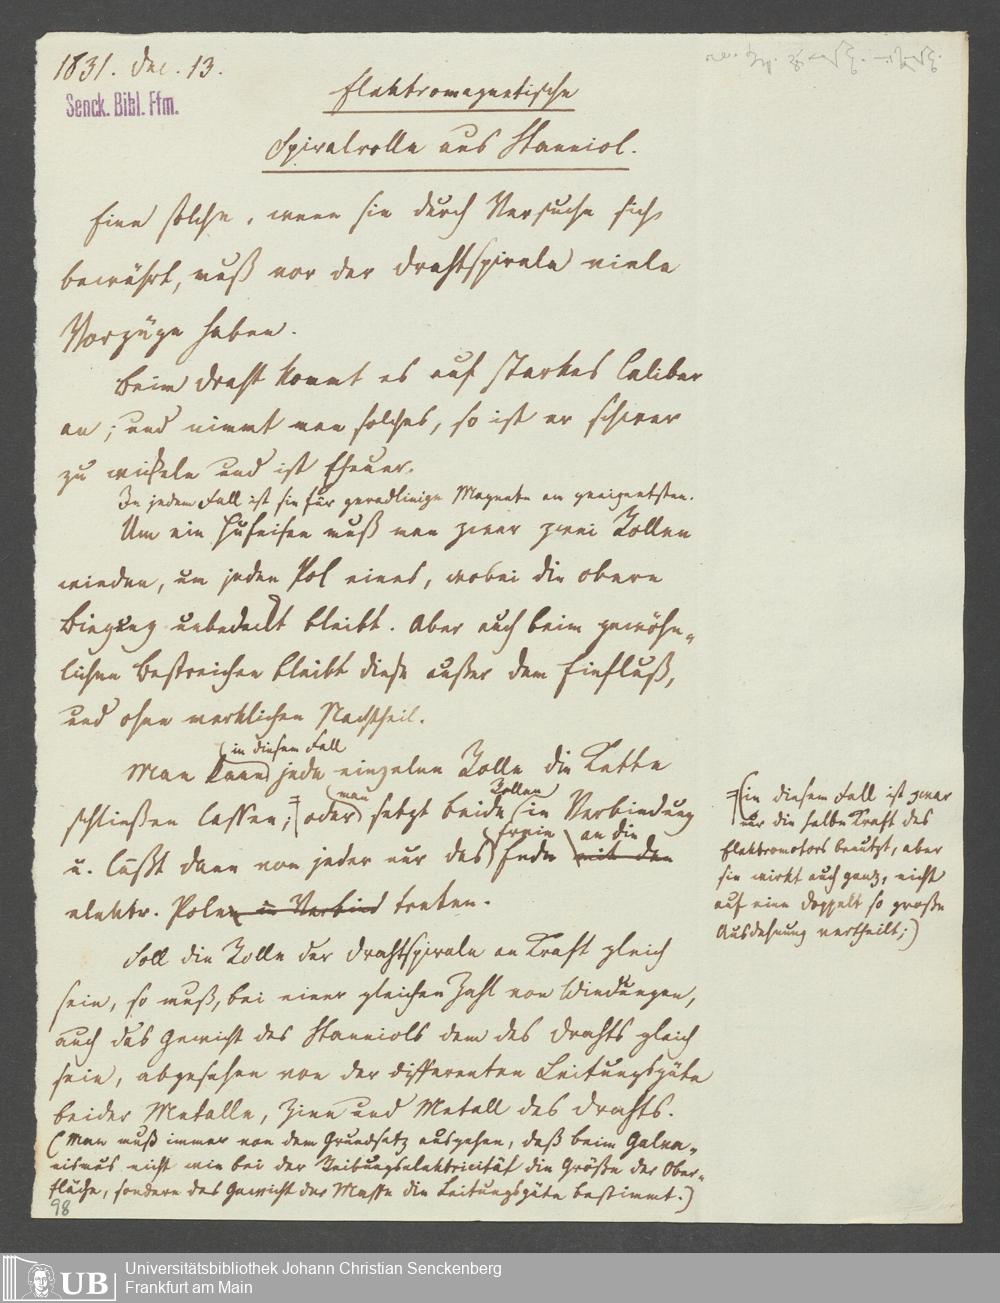 1831. Dec. 13.
Senck. Bibl. Ffm.
Elektromagnetische
Spiralrolle aus Stanniol.
Eine solche, wenn sie durch Versuche sich
bewährt, muß vor der Drahtspirale viele
Vorzüge haben.
Beim Draht kommt es auf starkes Caliber
an; und nimmt man solches, so ist er schwer
zu wickeln und ist theuer.
In jedem Fall ist sie für geradlinige Magnete am geeignetsten.
Um ein Hufeisen muß man zwar zwei Rollen
winden, um jeden Pol eine, wobei die obere
Biegung unbedeckt bleibt. Aber auch beim gewöhn-
lichen Bestreichen bleibt diese außer dem Einfluß,
und ohne merklichen Nachtheil.
in diesem Fall
Man kann jede einzelne Rolle die Kette
man Rollen
schließen lassen; oder setzt beide in Verbindung
freie an die
u. läßt dann von jeder nur das Ende mit den
elektr. Polen in Verbind treten.
in diesem Fall ist zwar
nur die halbe Kraft des
Elektromotors benutzt, aber
sie wirkt auch ganz, nicht
auf eine doppelt so große
Ausdehnung vertheilt;)
Soll die Rolle der Drahtspirale an Kraft gleich
sein, so muß, bei einer gleichen Zahl von Windungen,
auch das Gewicht des Stanniols dem des Drahts gleich
sein, abgesehen von der differenten Leitungsgüte
beider Metalle, Zinn und Metall des Drahts.
(Man muß immer von dem Grundsatz ausgehen, daß beim Galva-
nismus nicht wie bei der Reibungselektricität die Größe der Ober-
fläche, sondern das Gewicht der Masse die Leitungsgüte bestimmt.)
98
UB
Universitätsbibliothek Johann Christian Senckenberg
Frankfurt am Main